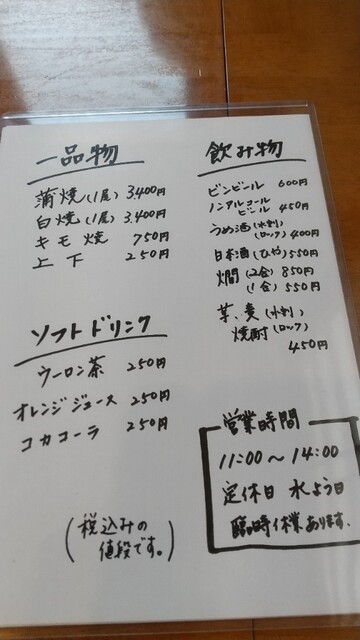 一品物
蒲焼(1尾) 3,400円
白焼(1尾) 3,400円
キモ焼 750円
上下 250円
ソフトドリンク
ウーロン茶 250円
オレンジジュース 250円
コカコーラ 250円
(税込みの
値段です。)
飲み物
ビンビール 600円
ノンアルコール
ビール 450円
うめ酒(水割)
(ロック) 400円
日本酒(ひや) 550円
燗(2合) 850円
(1合) 550円
芋、麦(水割)
焼酎(ロック)
450円
営業時間
11:00～14:00
定休日 水よう日
臨時休業あります.